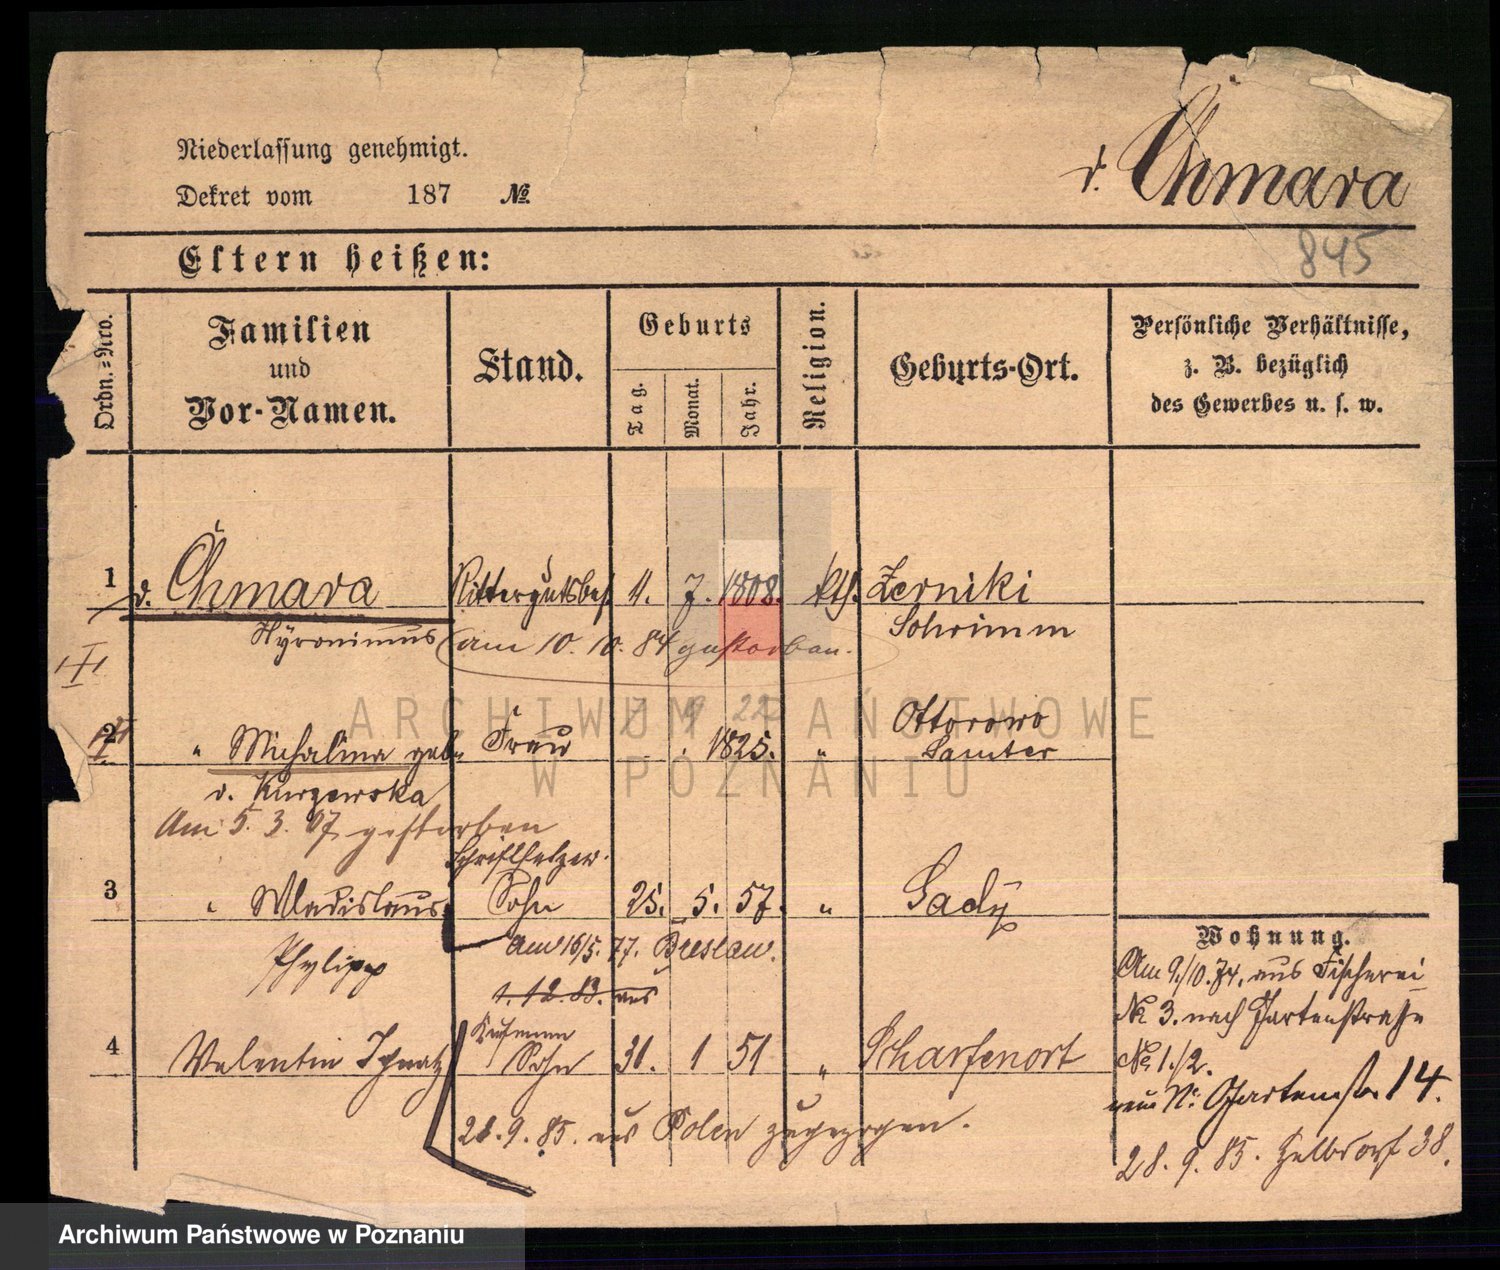 Niederlassung genehmigt.
Dekret vom 187 №
v. Chmara
845
Eltern heißen:
Ordn.-Nro.
Familien
und
Vor-Namen.
Stand.
Geburts
Tag.
Monat.
Jahr.
Religion.
Geburts-Ort.
Persönliche Verhältnisse,
z. B. bezüglich
des Gewerbes u. s. w.
1 v. Chmara Rittergutsbes. 11. 7. 1808. kth. Zerniki
Hyronimus Schrimm
am 10. 10. 84 gestorben.
7 9 22
2 " Michalina geb. Frau 1825. " Ottorowo
Samter
v. Kurzewska
Am 5. 3. 07 gestorben
3 " Wladislaus Sohn 25. 5. 57. " Gady
Phylipp
am 16/5. 77. Breslau.
1. 12. 83. aus
4 Valentin Ignatz Sohn 31. 1 51 " Scharfenort
28. 9. 85. aus Polen zugezogen.
Wohnung.
Am 9./10. 74. aus Fischerei
№ 3. nach Gartenstraße
№ 1/2.
neue Nr. Gartenstr. 14.
28. 9. 85. Halbdorf 38.
ARCHIWUM PAŃSTWOWE
W POZNANIU
Archiwum Państwowe w Poznaniu